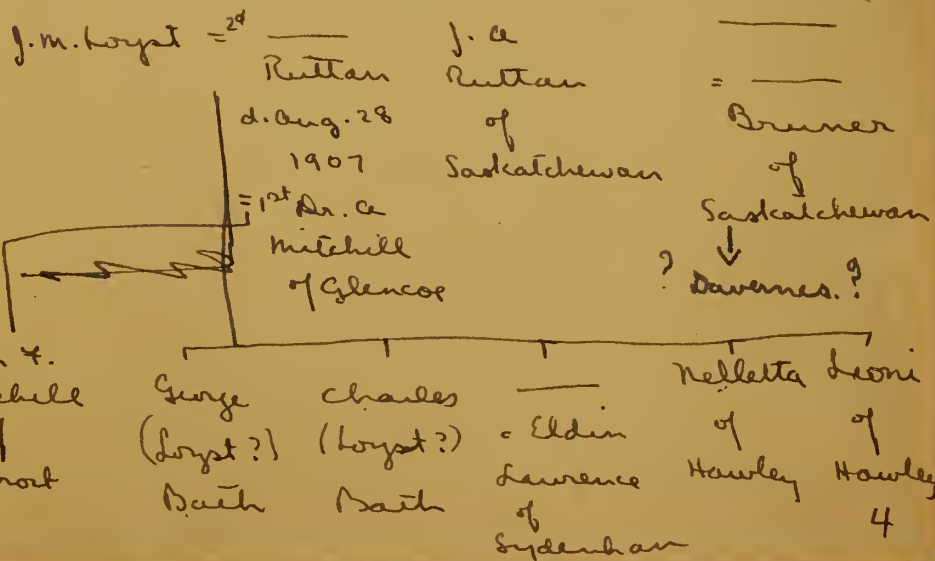 J. M. Loyst = 2d —— Ruttan
d. Aug. 28
1907
= 1st Dr. A
Mitchill
of Glencoe
J. A
Ruttan
of
Saskatchewan
——
= ——
Bruner
of
Saskatchewan
? Davernes. ?
F.
chill
George
(Loyst?)
Bath
Charles
(Loyst?)
Bath
——
= Eldin
Lawrence
of
Sydenham
Nelletta
of
Hawley
Leoni
of
Hawley
4